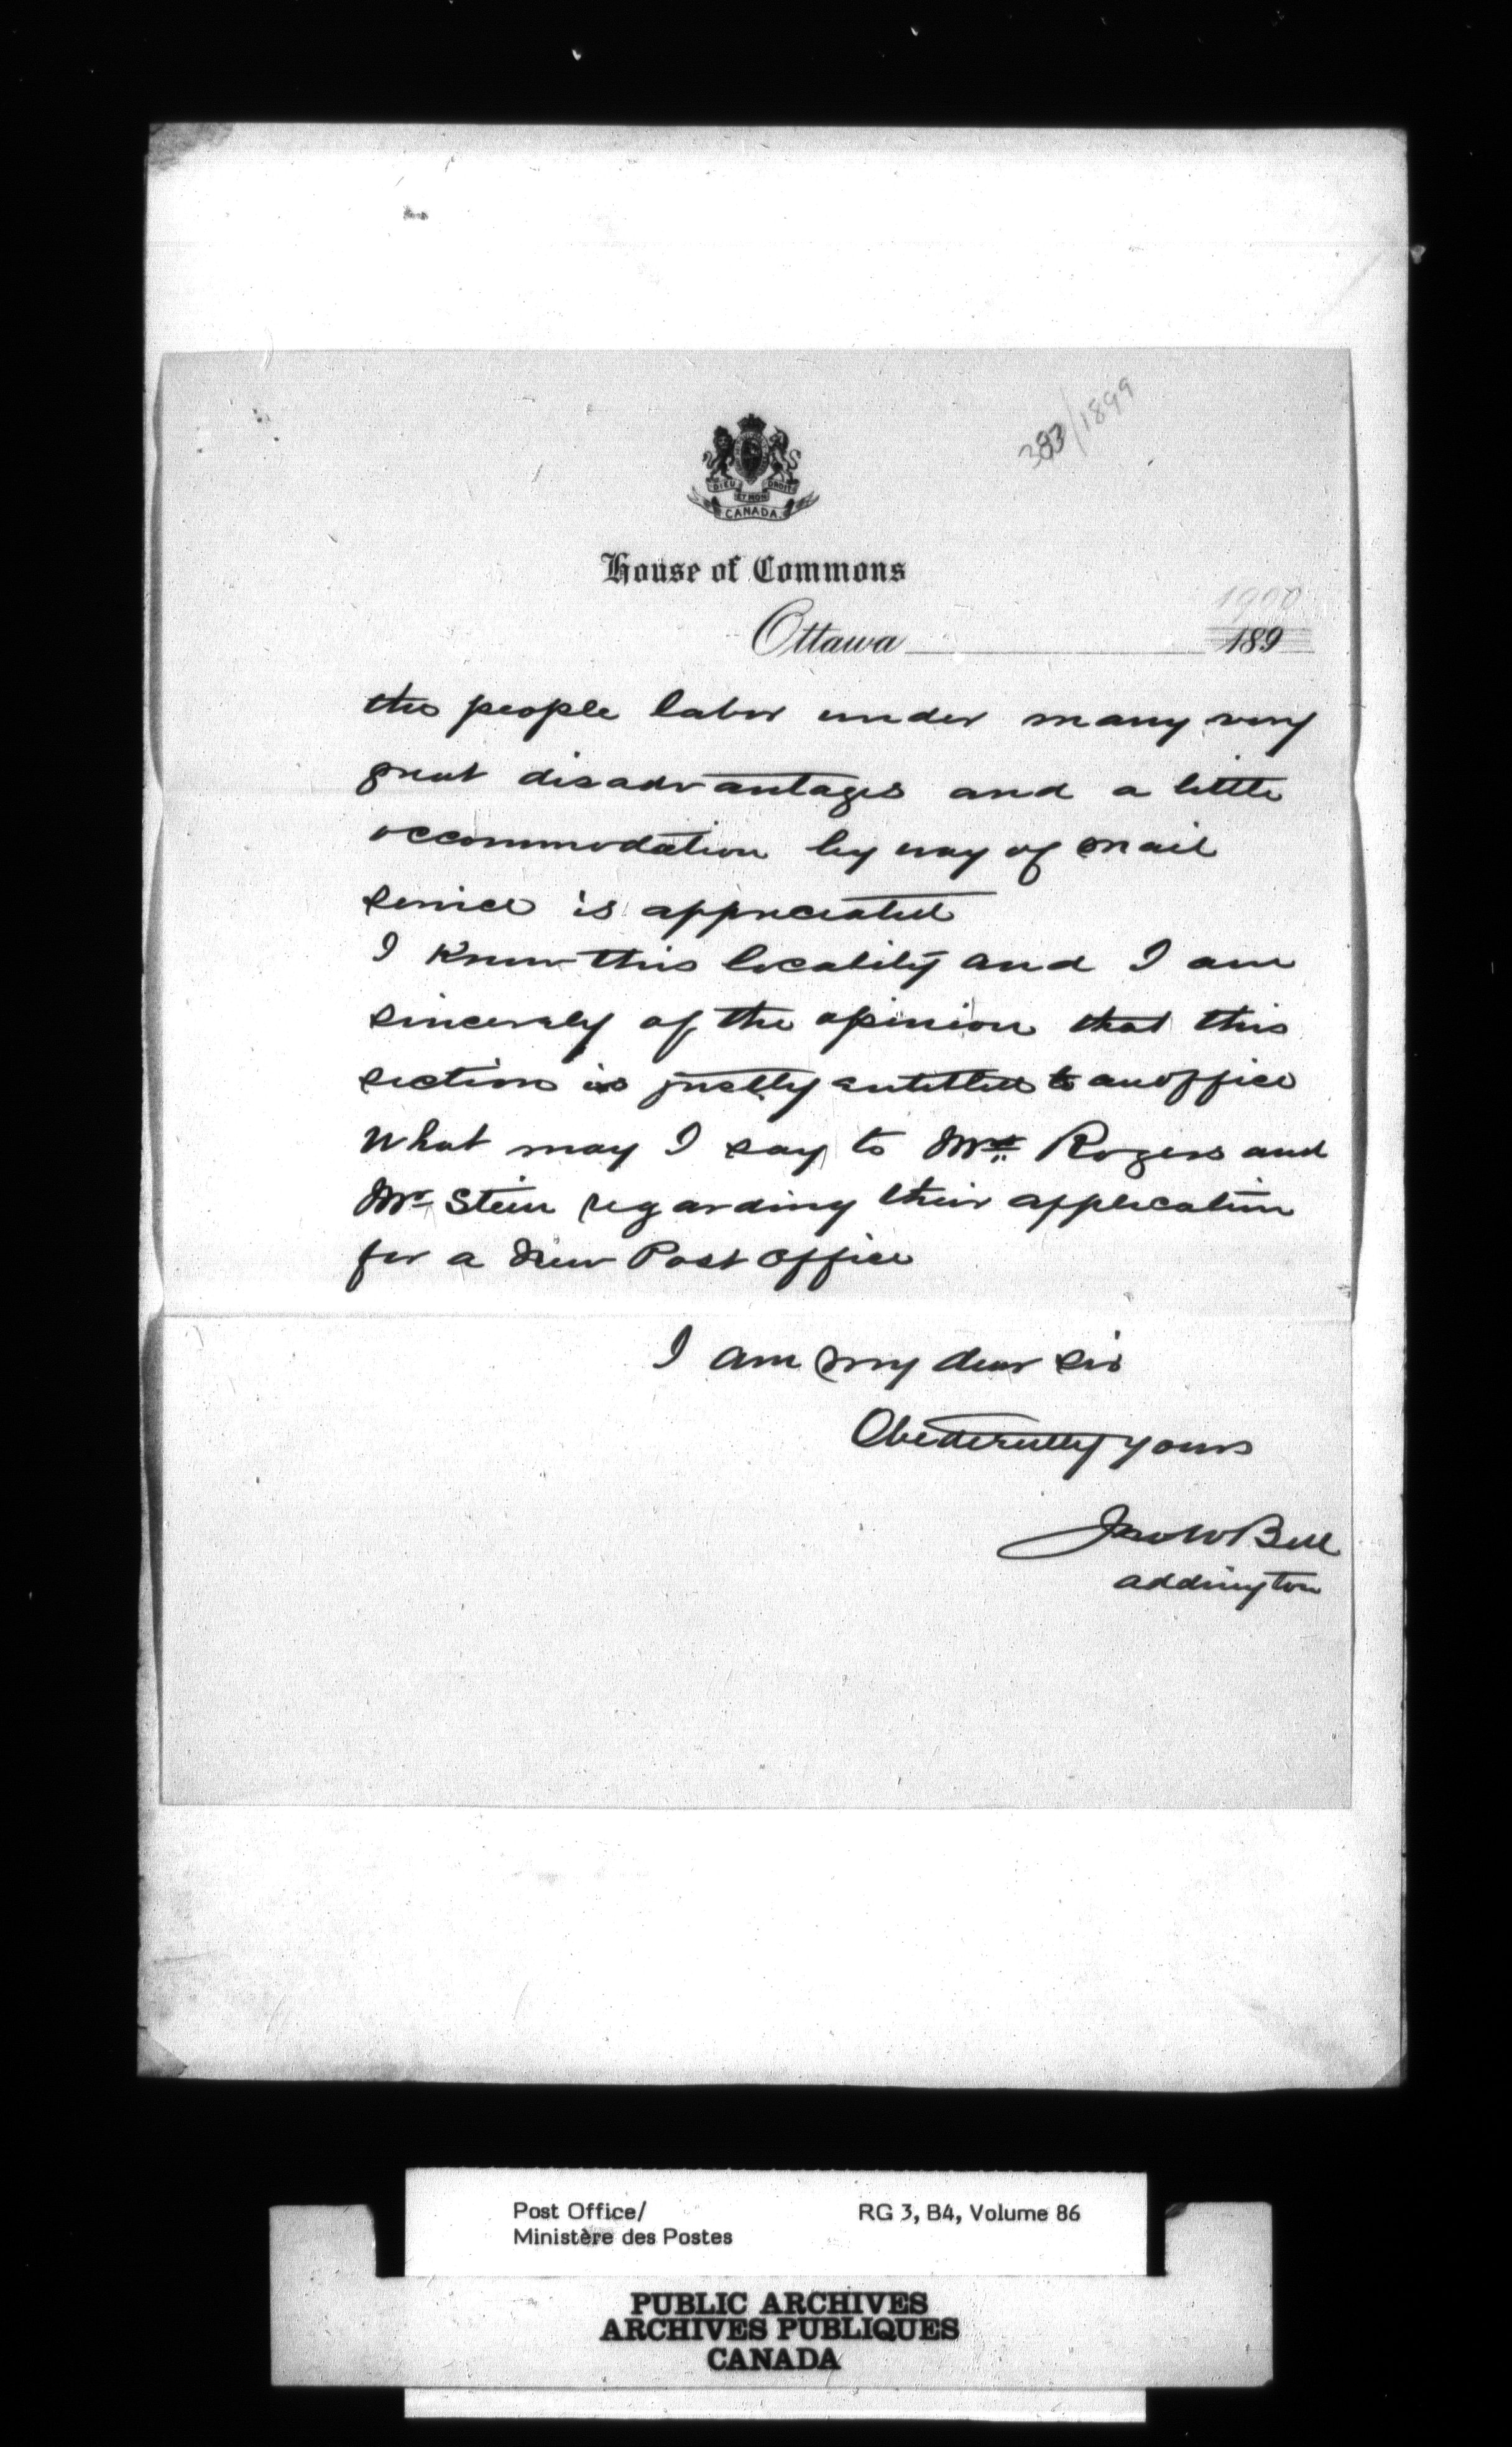 383/1899
DIEU ET MON DROIT
CANADA
House of Commons
1900
Ottawa 189
the people labor under many very
great disadvantages and a little
accommodation by way of mail
service is appreciated
I know this locality and I am
sincerely of the opinion that this
section is justly entitled to an office
What may I say to Mrs Rogers and
Mr Stein regarding their application
for a New Post Office
I am my dear sir
yours
Jno W Bell
Addington
Post Office/
Ministère des Postes
RG 3, B4, Volume 86
PUBLIC ARCHIVES
ARCHIVES PUBLIQUES
CANADA